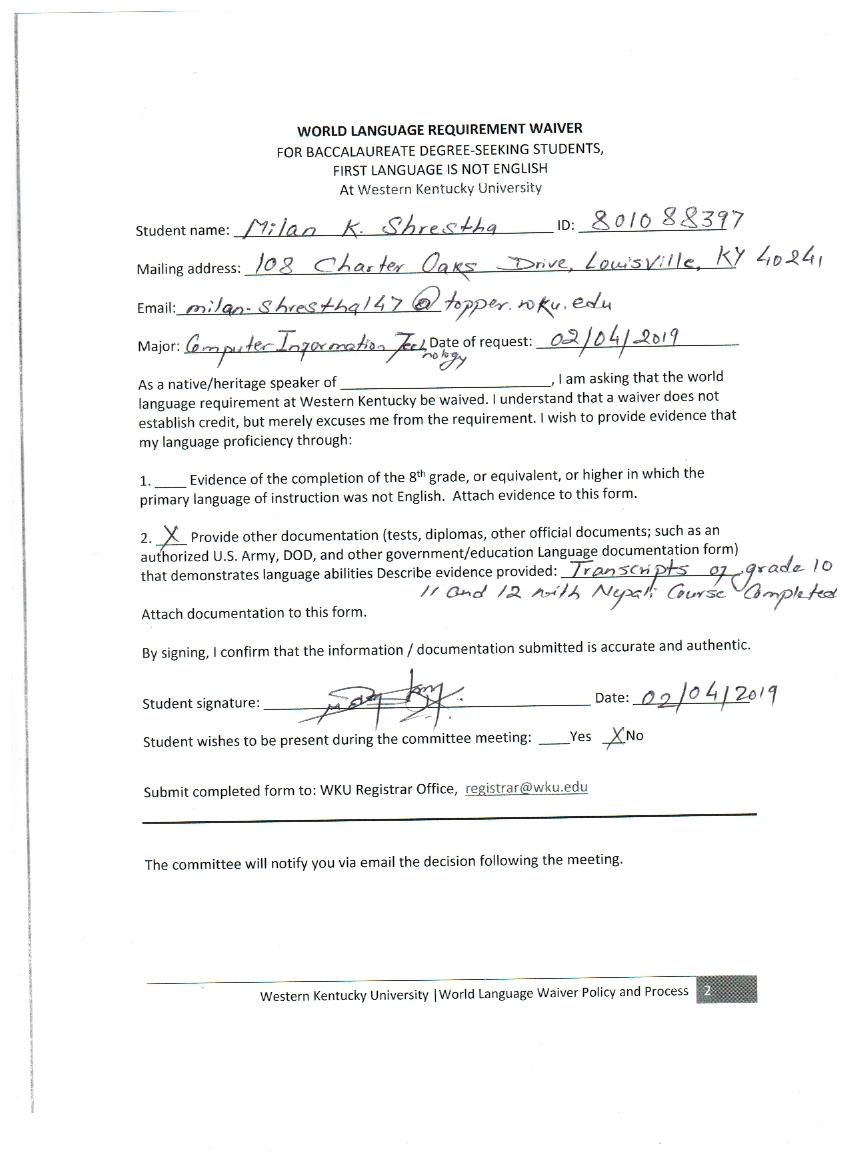 WORLD LANGUAGE REQUIREMENT WAIVER
FOR BACCALAUREATE DEGREE-SEEKING STUDENTS,
FIRST LANGUAGE IS NOT ENGLISH
At Western Kentucky University
Student name: Milan K. Shrestha ID: 801088397
Mailing address: 108 Charter Oaks Drive, Louisville, KY 40241
Email: milan.shrestha147@topper.wku.edu
Major: Computer Information Technology Date of request: 02/04/2019
As a native/heritage speaker of ____________________, I am asking that the world
language requirement at Western Kentucky be waived. I understand that a waiver does not
establish credit, but merely excuses me from the requirement. I wish to provide evidence that
my language proficiency through:
1. ____ Evidence of the completion of the 8th grade, or equivalent, or higher in which the
primary language of instruction was not English. Attach evidence to this form.
2. X Provide other documentation (tests, diplomas, other official documents; such as an
authorized U.S. Army, DOD, and other government/education Language documentation form)
that demonstrates language abilities Describe evidence provided: Transcripts of grade 10
11 and 12 with Nepali Course Completed
Attach documentation to this form.
By signing, I confirm that the information / documentation submitted is accurate and authentic.
Student signature: Date: 02/04/2019
Student wishes to be present during the committee meeting: ____Yes X No
Submit completed form to: WKU Registrar Office, registrar@wku.edu
The committee will notify you via email the decision following the meeting.
Western Kentucky University |World Language Waiver Policy and Process 2